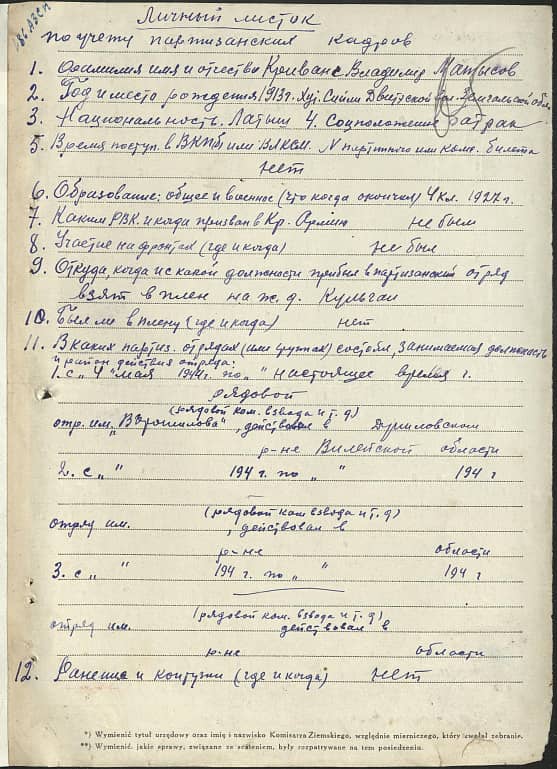 Личный листок
по учету партизанских кадров
1. Фамилия имя и отчество Криванс Владимир
2. Год и место рождения 1913 г. Хут. обл.
3. Национальность. Латыш 4. Соцположение батрак
5 Время поступ. в ВКП(б) или ВЛКСМ. N партийного или комс. билета
нет
6. Образование: общее и военное (что когда окончил) 4 кл. 1927 г.
7. Каким РВК. и когда призван в Кр. Армию не был
8. Участие на фронтах (где и когда) не был
9. Откуда, когда и с какой должности прибыл в партизанский отряд
взят в плен на ж. д.
10. Был ли в плену (где и когда) нет
11. В каких партиз. отрядах (или группах) состоял, занимаемая должность
и район действия отряда.
1. с „4" мая 1944 г. по „ " настоящее время г.
рядовой
(рядовой ком. взвода и т. д)
отр. им. „Ворошилова", действовал в
р-не Вилейской области
2. с „ " 194 г. по „ " 194 г
(рядовой ком взвода и т. д)
отряд им. , действовал в
р-не области
3. с „ " 194 г. по „ " 194 г
(рядовой ком. взвода и т. д)
отряд им. действовал в
р-не области
12. Ранение и контузии (где и когда) нет
*) Wymienić tytuł urzędowy oraz imię i nazwisko Komisarza Ziemskiego, względnie mierniczego, który zwołał zebranie.
**) Wymienić, jakie sprawy, związane ze scaleniem, były rozpatrywane na tem posiedzeniu.